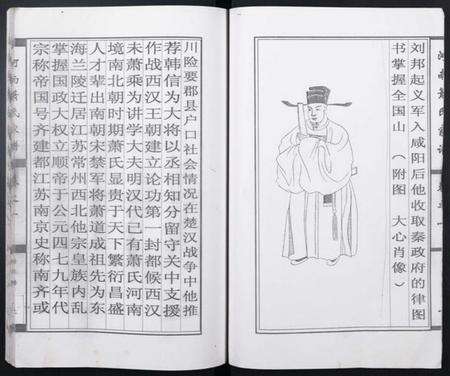 刘邦起义军入咸阳后他收取秦政府的律图
书掌握全国山（附图 大心肖像）
川险要郡县户口社会情况在楚汉战争中他推
荐韩信为大将以丞相知分留守关中支援
作战西汉王朝建立论功第一封都候西汉
未萧乘为讲学大夫明汉代已有萧氏河南
境南北朝时期萧氏显贵于天下繁衍昌盛
人才辈出南朝宋禁军将萧道成祖先为东
海兰陵迁居江苏常州西北他宗皇族内乱
掌握国政大权立顺帝于公元四七九年代
宗称帝国号齐建都江苏南京史称南齐或